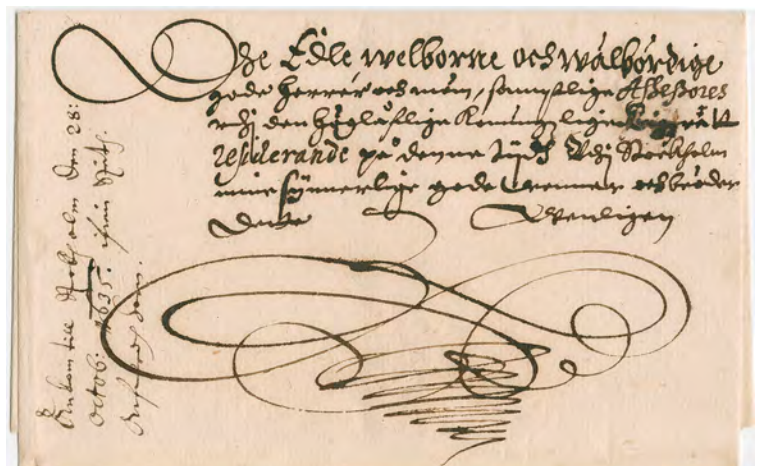 The Edle welborne och wälbördige
gode herrer och män, samptlige Assessores
vthj den höglåflige Konungzlige Krigzrätt
residerande på denne tijdh vthj Stockholm
mine synnerlige gode venner och bröder
Dette Wenligen
Ankom till Stocholm den 28:
Octob: 1635.